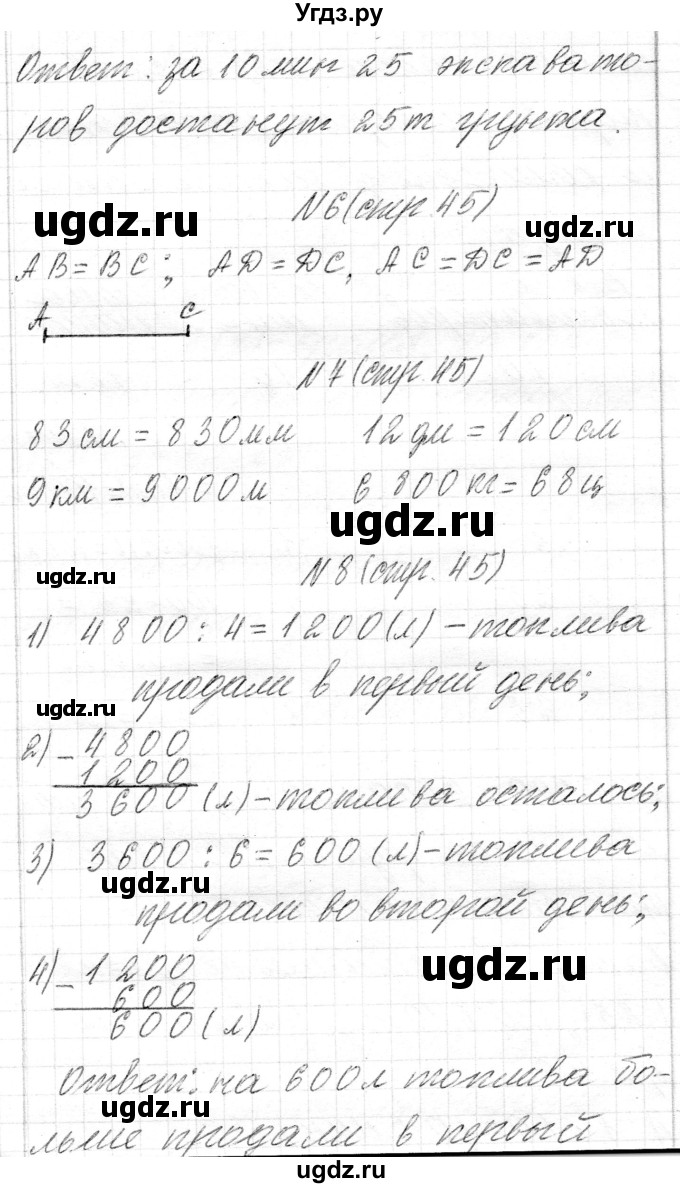 Угдз.ру
Ответ: за 10 мин 25 экскавато-
ров достанут 25т грунта.
N6(стр. 45)
ugdz.ru ugdz.ru
AB = BC; AD = DC, AC = DC = AD
A C
N7(стр. 45)
83см = 830мм 12дм = 120см
9км = 9000м 6 800кг = 68ц
ugdz.ru
ugdz.ru N8(стр. 45)
1) 4800 : 4 = 1200(л) – топлива
продали в первый день;
ugdz.ru
2) – 4800
1200
3600(л) – топлива осталось;
3) 3600 : 6 = 600(л) – топлива
ugdz.ru
продали во второй день;
4) – 1200
600
ugdz.ru
600(л)
Ответ: на 600л топлива бо-
ugdz.ru
льше продали в первый
ugdz.ru